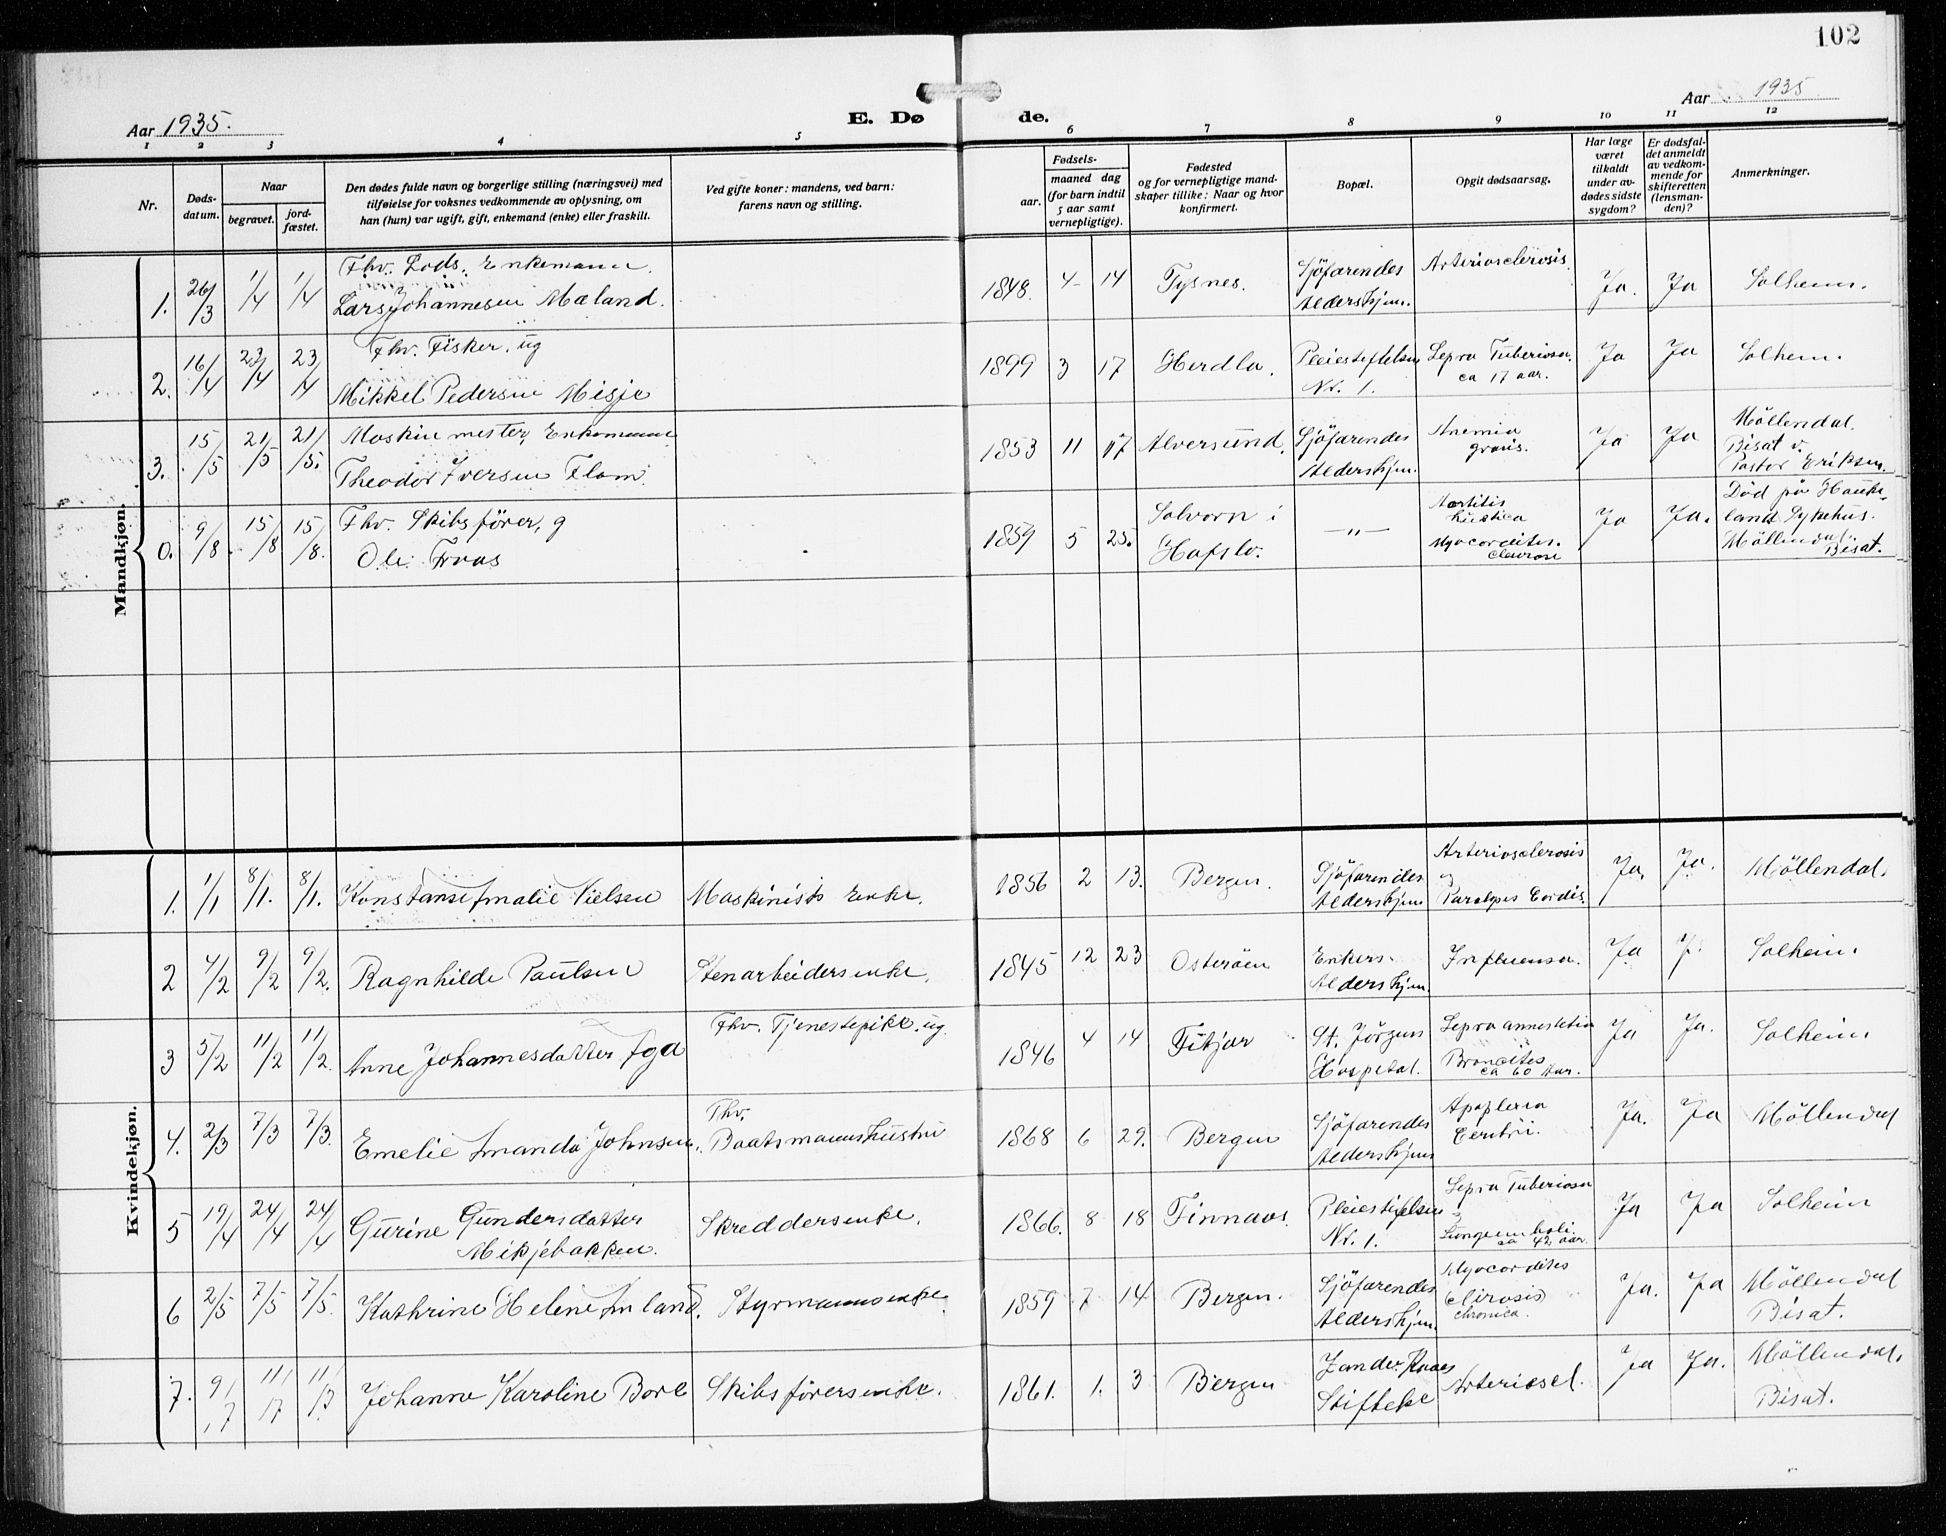 102
Aar 1935.
E. Døde.
Aar 1935
1 2 3 4 5 6 7 8 9 10 11 12
Nr.
Dødsdatum.
Naar
begravet.
jordfæstet.
Den dødes fulde navn og borgerlige stilling (næringsvei) med
tilføielse for voksnes vedkommende av oplysning, om
han (hun) var ugift, gift, enkemand (enke) eller fraskilt.
Ved gifte koner: mandens, ved barn:
farens navn og stilling.
Fødsels-
aar.
maaned dag
(for barn indtil
5 aar samt
vernepligtige).
Fødested
og for vernepligtige mand-
skaper tillike: Naar og hvor
konfirmert.
Bopæl.
Opgit dødsaarsag.
Har læge
været
tilkaldt
under av-
dødes sidste
sygdom?
Er dødsfal-
det anmeldt
av vedkom-
mende for
skifteretten
(lensman-
den)?
Anmerkninger.
Mandkjøn.
1. 26/3 1/4 1/4 Fhv. Lods. Enkemann.
Lars Johannesen Mæland. 1848. 4 14 Tysnes. Sjöfarendes
Aldershjem. Arteriosclerosis. Ja. Ja Solheim.
2. 16/4 23/4 23/4 Fhv. Fisker. ug
Mikkel Pedersen Misje 1899 3 17 Herdla. Pleiestiftelsen
Nr. 1. Lepra Tuberiosa.
ca 17 aar. Ja Ja Solheim.
3. 15/5 21/5 21/5. Maskinmester, Enkemann
Theodor Iversen Flom. 1853 11 17 Alversund. Sjöfarendes
Aldershjem. Anemia
gravis. Ja Ja Möllendal.
Bisat v.
Pastor Eriksen.
0. 9/8 15/8 15/8. Fhv. Skibsförer, g
Ole Fraas 1859 5 25. Solvorn i
Hafslo. —"— Ja Ja. Död på Hauke-
land Sykehus.
Möllendal.
Bisat.
Kvindekjøn.
1. 1/1 8/1. 8/1. Konstanse Amalie Nielsen Maskinists Enke. 1856 2 13. Bergen. Sjöfarendes
Aldershjem Arteriosclerosis
og
Paralysis Cordis. Ja. Ja. Möllendal.
2 4/2 9/2 9/2. Ragnhilde Paulsen Stenarbeidersenke. 1845 12 23 Osteröen Enkers-
Aldershjem. Influensa. Ja J. Solheim.
3 5/2 11/2 11/2. Anne Johannesdatter Aga Fhv. Tjenestepike. ug. 1846 4 14 Fitjar St. Jörgens
Hospetal. Lepra annestetia
Broncites
ca 60 aar. Ja Ja. Solheim
4. 2/3 7/3 7/3. Emelie Amanda Johnsen. Fhv.
Baatsmannshustru 1868 6 29. Bergen Sjöfarendes
Aldershjem Apoplexia
Cerebri. Ja. Ja Möllendal
5 19/4 24/4 24/4 Gurine Gundersdatter
Mikjebakken. Skreddersenke. 1866. 8 18 Finnaas. Pleiestiftelsen
Nr. 1. Lepra Tuberiosa
Lungeemboli.
ca 42 aar. Ja Ja Solheim
6 2/5 7/5 7/5. Kathrine Helene Amland. Styrmannsenke. 1859 7 14 Bergen. Sjöfarendes
Aldershjem. Myocordites
clirosis
chronica. Ja. Ja Möllendal
Bisat.
7. 9/7 11/7 11/7. Johanna Karoline Bore Skibsförersenke. 1861. 1. 3 Bergen Zander Kaaes
Stiftelse Arterioscl. Ja Ja. Möllendal.
Bisat.